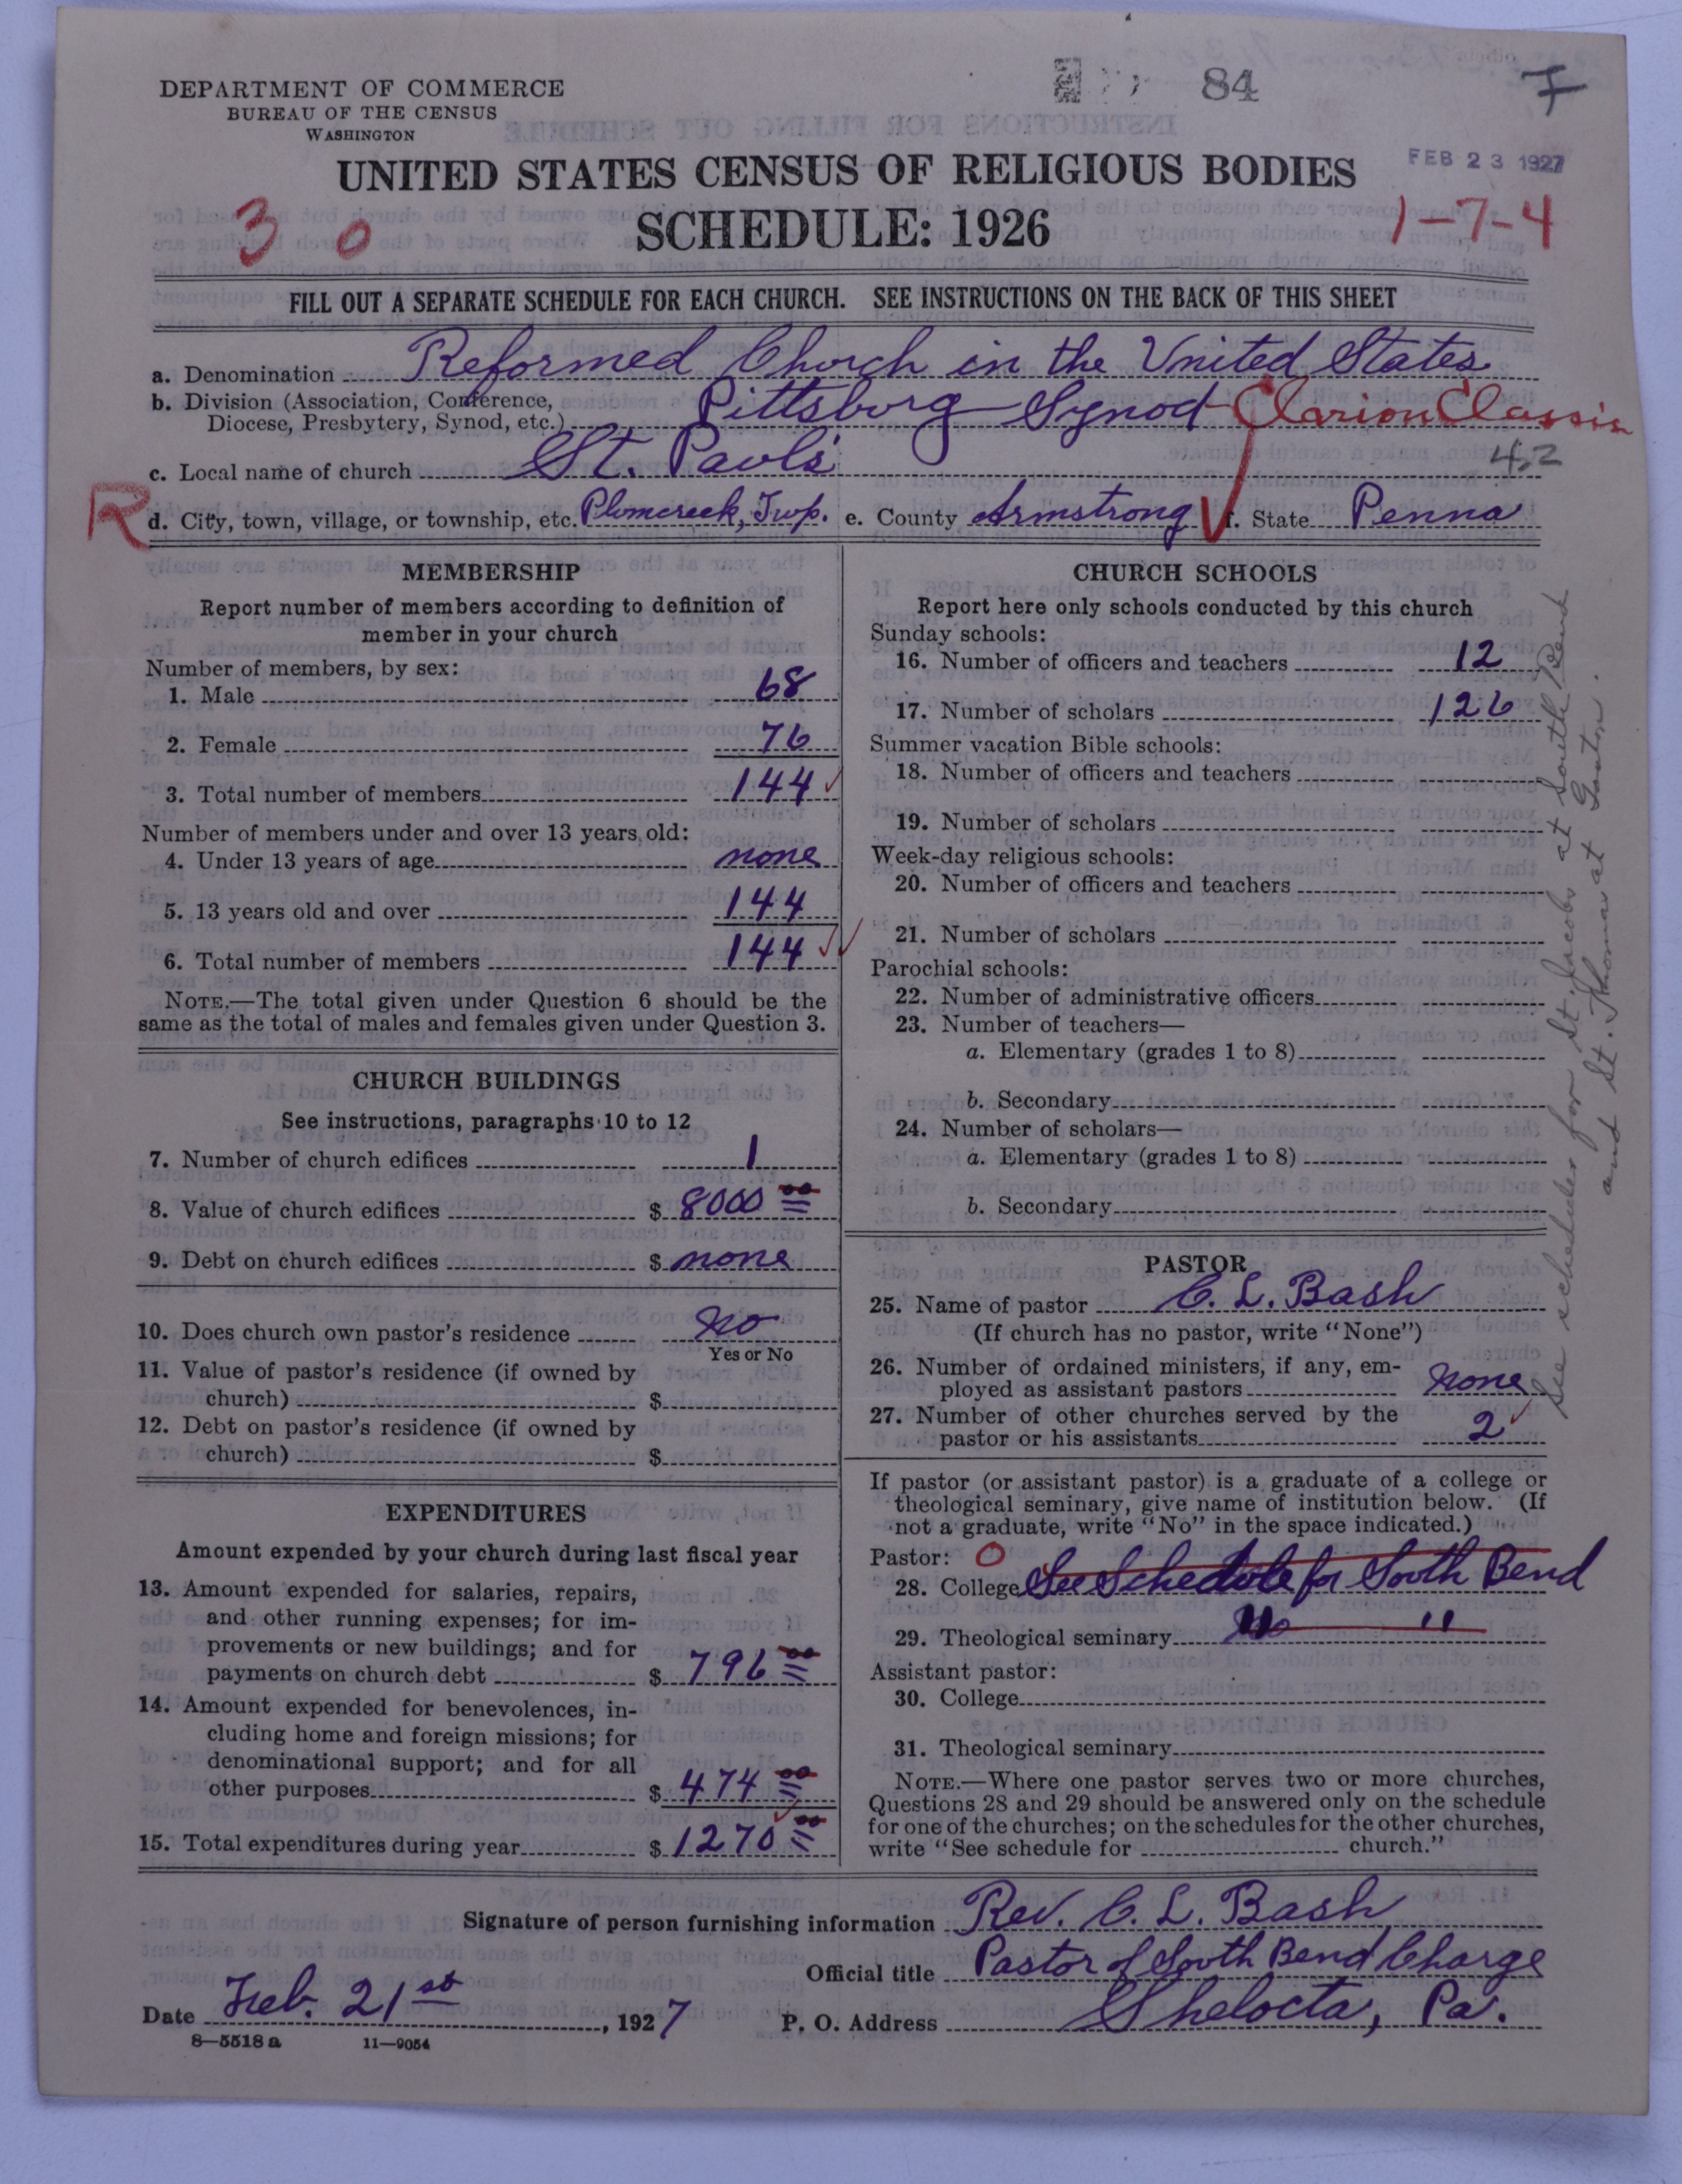 DEPARTMENT OF COMMERCE
BUREAU OF THE CENSUS
WASHINGTON
84
F
UNITED STATES CENSUS OF RELIGIOUS BODIES
FEB 23 1927
SCHEDULE: 1926
3 0
1-7-4
FILL OUT A SEPARATE SCHEDULE FOR EACH CHURCH. SEE INSTRUCTIONS ON THE BACK OF THIS SHEET
a. Denomination Reformed Church in the United States
b. Division (Association, Conference,
Diocese, Presbytery, Synod, etc.) Pittsburg Synod Clarion Classis
c. Local name of church St. Paul's
42
R
d. City, town, village, or township, etc. Plumcreek, Twp. e. County Armstrong f. State Penna
MEMBERSHIP
Report number of members according to definition of
member in your church
Number of members, by sex:
1. Male 68
2. Female 76
3. Total number of members 144
Number of members under and over 13 years old:
4. Under 13 years of age none
5. 13 years old and over 144
6. Total number of members 144
NOTE.—The total given under Question 6 should be the
same as the total of males and females given under Question 3.
CHURCH BUILDINGS
See instructions, paragraphs 10 to 12
7. Number of church edifices 1
8. Value of church edifices $ 8000 00
9. Debt on church edifices $ none
10. Does church own pastor's residence No
Yes or No
11. Value of pastor's residence (if owned by
church) $
12. Debt on pastor's residence (if owned by
church) $
EXPENDITURES
Amount expended by your church during last fiscal year
13. Amount expended for salaries, repairs,
and other running expenses; for im-
provements or new buildings; and for
payments on church debt $ 796 00
14. Amount expended for benevolences, in-
cluding home and foreign missions; for
denominational support; and for all
other purposes $ 474 00
15. Total expenditures during year $ 1270 00
CHURCH SCHOOLS
Report here only schools conducted by this church
Sunday schools:
16. Number of officers and teachers 12
17. Number of scholars 126
Summer vacation Bible schools:
18. Number of officers and teachers
19. Number of scholars
Week-day religious schools:
20. Number of officers and teachers
21. Number of scholars
Parochial schools:
22. Number of administrative officers
23. Number of teachers—
a. Elementary (grades 1 to 8)
b. Secondary
24. Number of scholars—
a. Elementary (grades 1 to 8)
b. Secondary
PASTOR
25. Name of pastor C. L. Bash
(If church has no pastor, write "None")
26. Number of ordained ministers, if any, em-
ployed as assistant pastors None
27. Number of other churches served by the
pastor or his assistants 2
If pastor (or assistant pastor) is a graduate of a college or
theological seminary, give name of institution below. (If
not a graduate, write "No" in the space indicated.)
Pastor: O
28. College See Schedule for South Bend
29. Theological seminary " "
Assistant pastor:
30. College
31. Theological seminary
NOTE.—Where one pastor serves two or more churches,
Questions 28 and 29 should be answered only on the schedule
for one of the churches; on the schedules for the other churches,
write "See schedule for church."
See schedules for St. Jacobs at South Bend
and St. Thomas at
Signature of person furnishing information Rev. C. L. Bash
Official title Pastor of South Bend Charge
Date Feb. 21st, 1927
P. O. Address Shelocta, Pa.
8—5518 a 11—9054